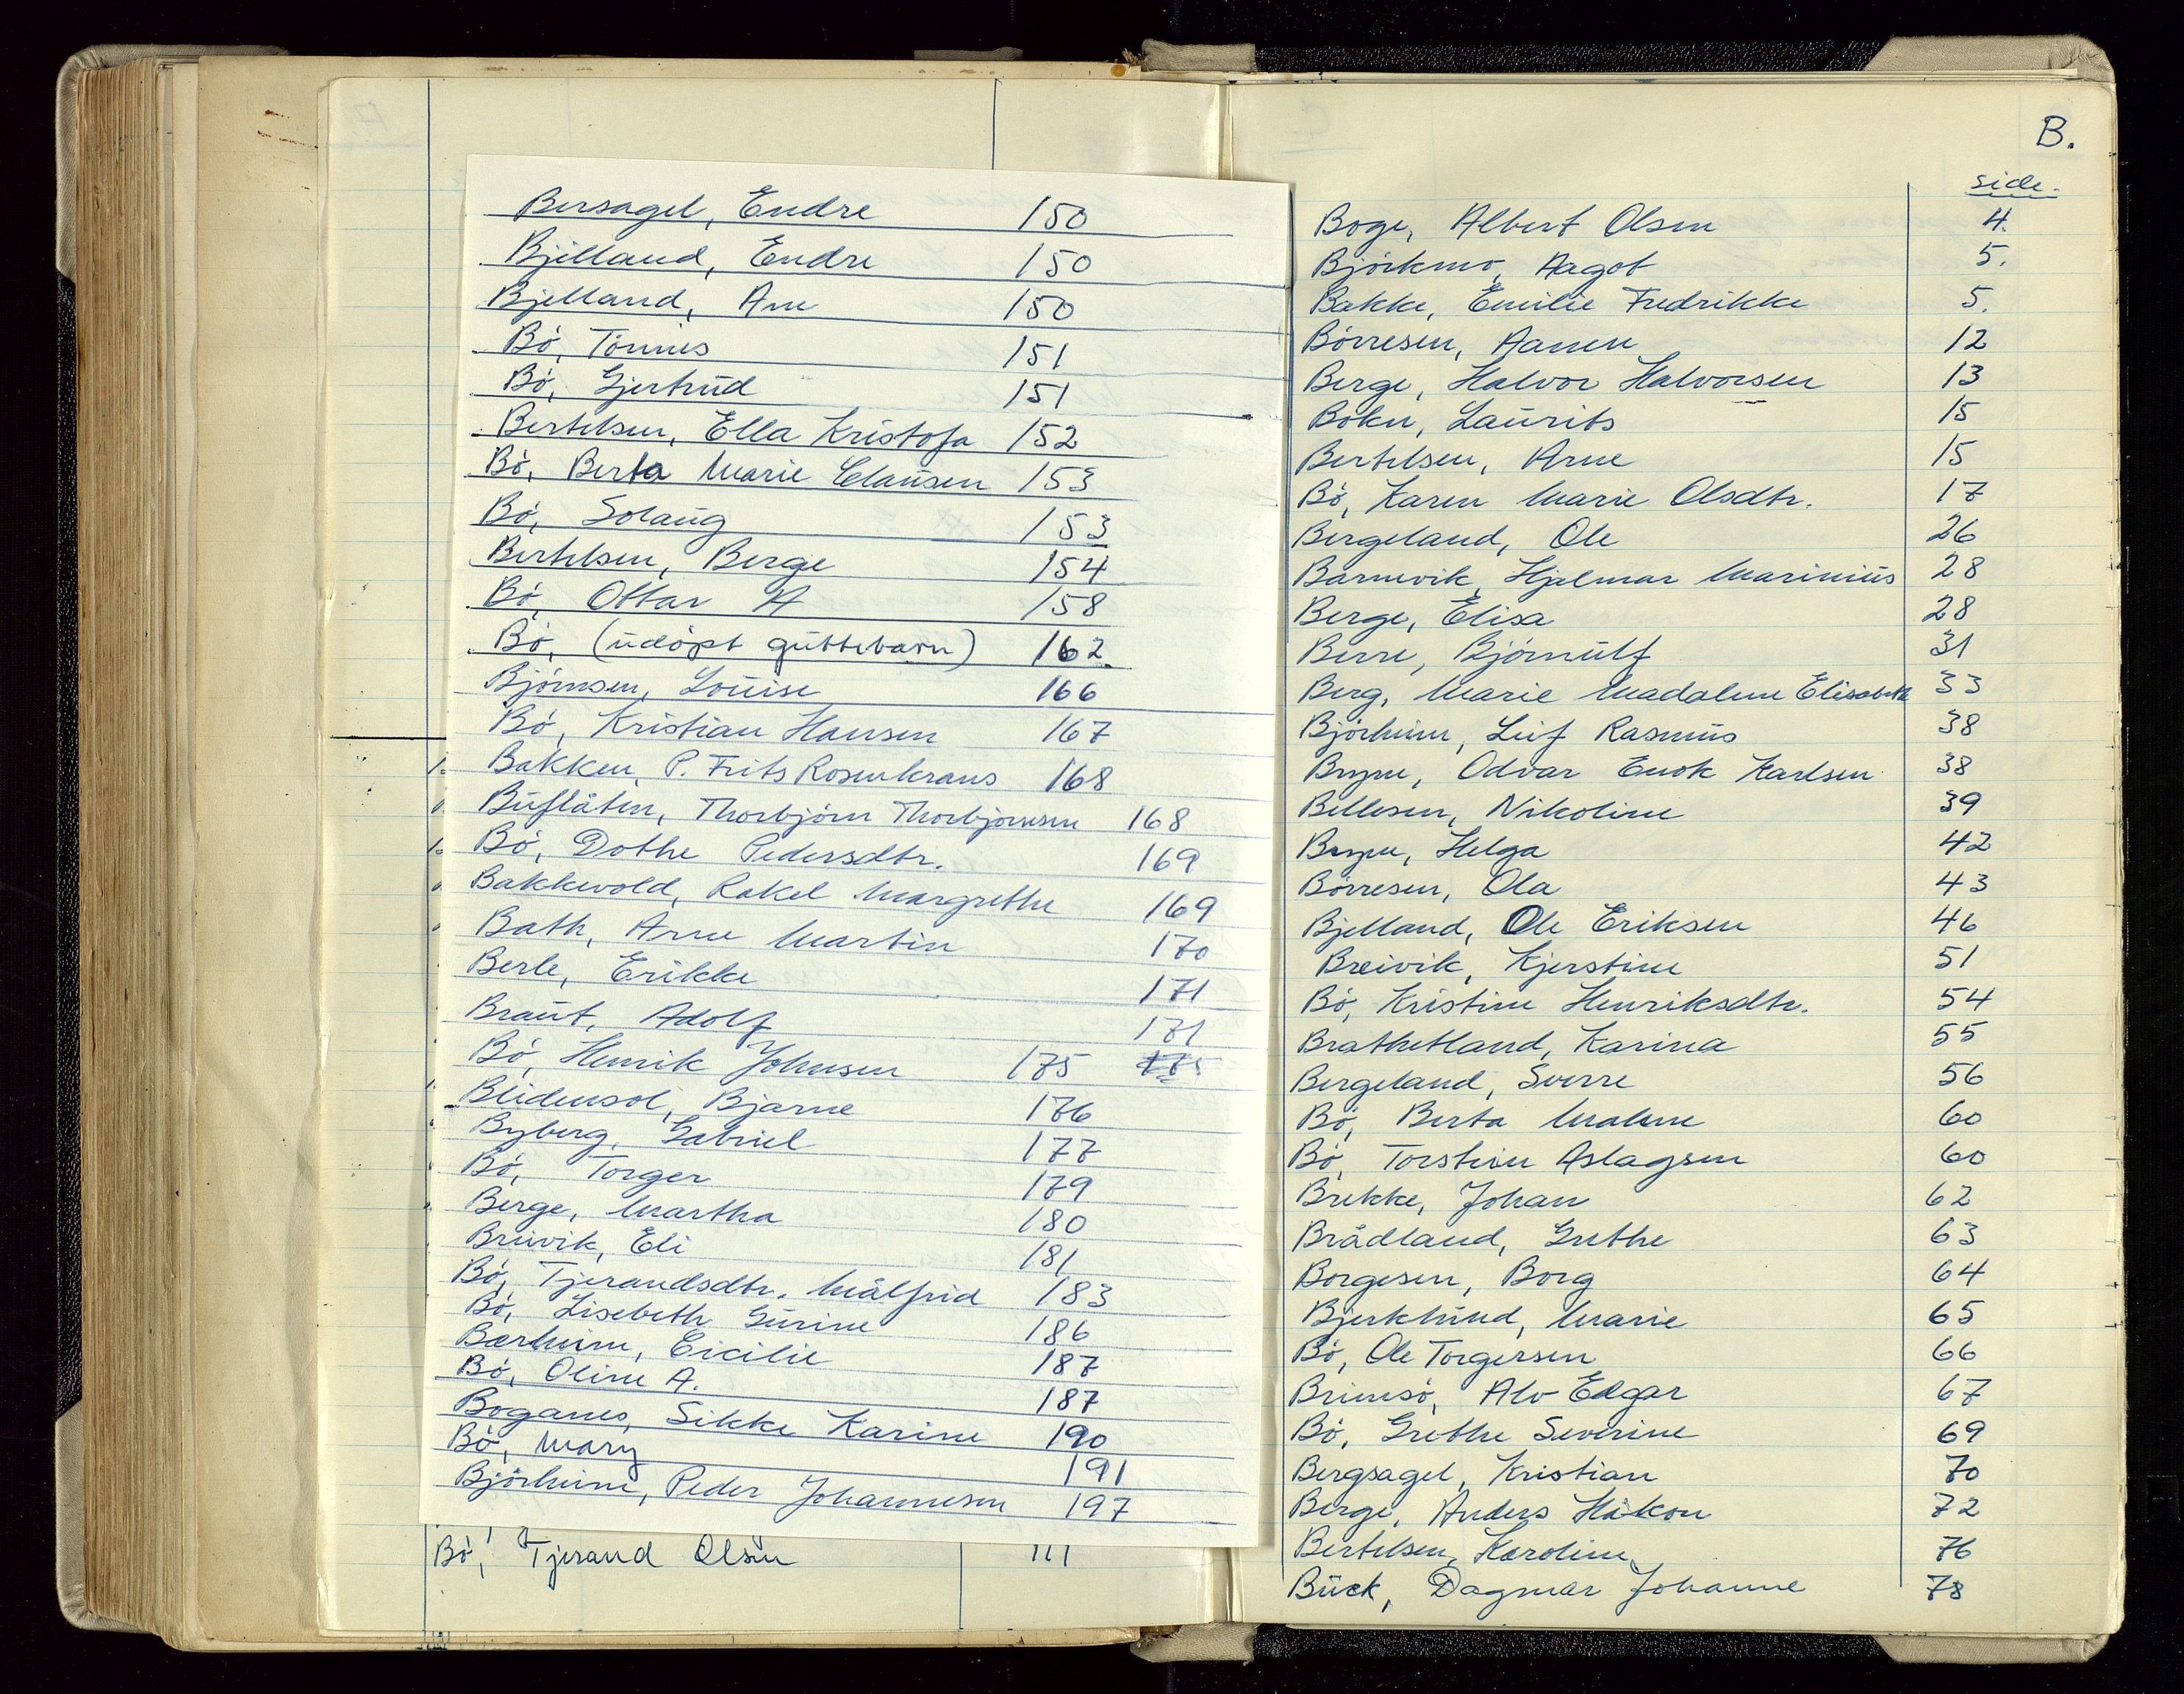 Bersagel, Endre 150
Bjelland, Endre 150
Bjelland, Arne 150
Bø, Tønnes 151
Bø, Gjertrud 151
Bertelsen, Ella Kristofa 152
Bø, Berta Marie Clausen 153
Bø, Solaug 153
Bertelsen, Berge 154
Bø, Ottar A 158
Bø, (udøpt guttebarn) 162
Bjørnsen, Louise 166
Bø, Kristian Hansen 167
Bakken, P. Frits Rosenkrans 168
Buflåten, Thorbjørn Thorbjørnsen 168
Bø, Dothe Pedersdtr. 169
Bakkevold, Rakel Margrethe 169
Bath, Arne Martin 170
Berle, Erikke 171
Braut, Adolf 171
Bø, Henrik Johnsen 175 175
Blidensol, Bjarne 176
Byberg, Gabriel 177
Bø, Torger 179
Berge, Martha 180
Breivik, Eli 181
Bø, Tjerandsdtr. Målfrid 183
Bø, Lisebeth Gurine 186
Bærheim, Cicilie 187
Bø, Oline A. 187
Boganes, Sikke Karine 190
Bø, Mary 191
Bjørheim, Peder Johannesen 197
Bø, Tjerand Olsen 111
B.
side.
Boge, Albert Olsen 4.
Bjørkmo, Aagot 5.
Bakke, Emilie Fredrikke 5.
Børresen, Aanen 12
Berge, Halvor Halvorsen 13
Bokn, Laurits 15
Bertelsen, Arne 15
Bø, Karen Marie Olsdtr. 17
Bergeland, Ole 26
Barnevik, Hjalmar Marinius 28
Berge, Elisa 28
Berre, Bjørnulf 31
Berg, Marie Madalene Elisabeth 33
Bjørheim, Leif Rasmus 38
Bryne, Odvar Enok Karlsen 38
Bellesen, Nikoline 39
Bryne, Helga 42
Børresen, Ola 43
Bjelland, Ole Eriksen 46
Breivik, Kjerstine 51
Bø, Kristine Henriksdtr. 54
Brathetland, Karina 55
Bergeland, Sverre 56
Bø, Berta Malene 60
Bø, Torstein Aslagsen 60
Brekke, Johan 62
Brådland, Grethe 63
Borgesen, Borg 64
Bjerklund, Marie 65
Bø, Ole Torgersen 66
Brimsø, Alv Edgar 67
Bø, Grethe Severine 69
Bergsagel, Kristian 70
Berge, Anders Håkon 72
Bertelsen, Karoline 76
Buck, Dagmar Johanne 78